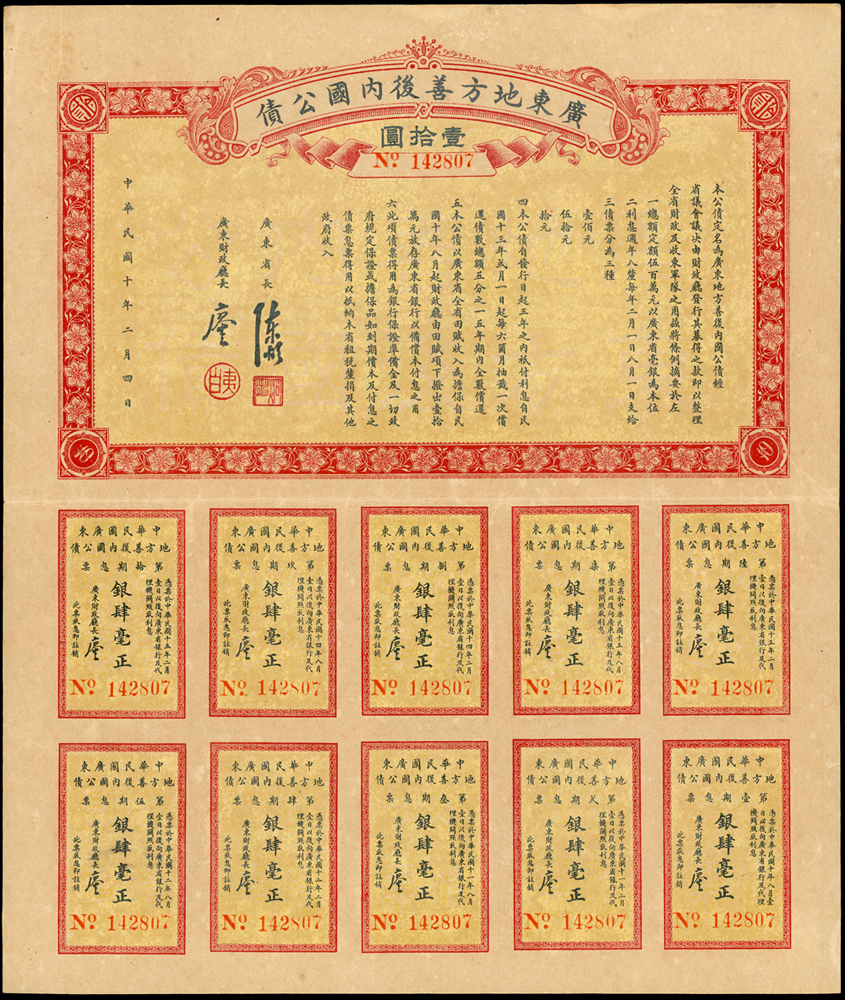 廣東地方善後內國公債
壹拾圓
No 142807
本公債定名為廣東地方善後內國公債經
省議會議決由財政廳發行其募得之款即以整理
全省財政及收束軍隊之用茲將條例摘要於左
一總額定額伍百萬元以廣東省毫銀為本位
二利息週年八釐每年二月一日八月一日支給
三債票分為三種
壹佰元
伍拾元
拾元
四本公債自發行日起三年之內祇付利息自民
國十三年弍月一日起每六箇月抽籤一次償
還債數總額五分之一五年期內全數償還
五本公債以廣東省全省田賦收入為擔保自民
國十年八月起財政廳由田賦項下撥出壹拾
萬元放存廣東省銀行以備償本付息之用
六此項債票得用為銀行保證準備金及一切政
府規定保證或擔保品如到期債本及付息之
債票息票得用以抵納本省租稅釐捐及其他
政府收入
廣東省長 陳炯
廣東財政廳長 廖
中華民國十年二月四日
中華民國廣東
地方善後內國公債
第陸期息票
憑票於中華民國十三年二月
壹日以後向廣東省銀行及代
理機關照收利息
銀肆毫正
廣東財政廳長 廖
此票收息即註銷
No 142807
中華民國廣東
地方善後內國公債
第柒期息票
憑票於中華民國十三年八月
壹日以後向廣東省銀行及代
理機關照收利息
銀肆毫正
廣東財政廳長 廖
此票收息即註銷
No 142807
中華民國廣東
地方善後內國公債
第捌期息票
憑票於中華民國十四年二月
壹日以後向廣東省銀行及代
理機關照收利息
銀肆毫正
廣東財政廳長 廖
此票收息即註銷
No 142807
中華民國廣東
地方善後內國公債
第玖期息票
憑票於中華民國十四年八月
壹日以後向廣東省銀行及代
理機關照收利息
銀肆毫正
廣東財政廳長 廖
此票收息即註銷
No 142807
中華民國廣東
地方善後內國公債
第拾期息票
憑票於中華民國十五年二月
壹日以後向廣東省銀行及代
理機關照收利息
銀肆毫正
廣東財政廳長 廖
此票收息即註銷
No 142807
中華民國廣東
地方善後內國公債
第壹期息票
憑票於中華民國十年八月壹
日以後向廣東省銀行及代理
機關照收利息
銀肆毫正
廣東財政廳長 廖
此票收息即註銷
No 142807
中華民國廣東
地方善後內國公債
第弍期息票
憑票於中華民國十一年二月
壹日以後向廣東省銀行及代
理機關照收利息
銀肆毫正
廣東財政廳長 廖
此票收息即註銷
No 142807
中華民國廣東
地方善後內國公債
第叁期息票
憑票於中華民國十一年八月
壹日以後向廣東省銀行及代
理機關照收利息
銀肆毫正
廣東財政廳長 廖
此票收息即註銷
No 142807
中華民國廣東
地方善後內國公債
第肆期息票
憑票於中華民國十二年二月
壹日以後向廣東省銀行及代
理機關照收利息
銀肆毫正
廣東財政廳長 廖
此票收息即註銷
No 142807
中華民國廣東
地方善後內國公債
第伍期息票
憑票於中華民國十二年八月
壹日以後向廣東省銀行及代
理機關照收利息
銀肆毫正
廣東財政廳長 廖
此票收息即註銷
No 142807